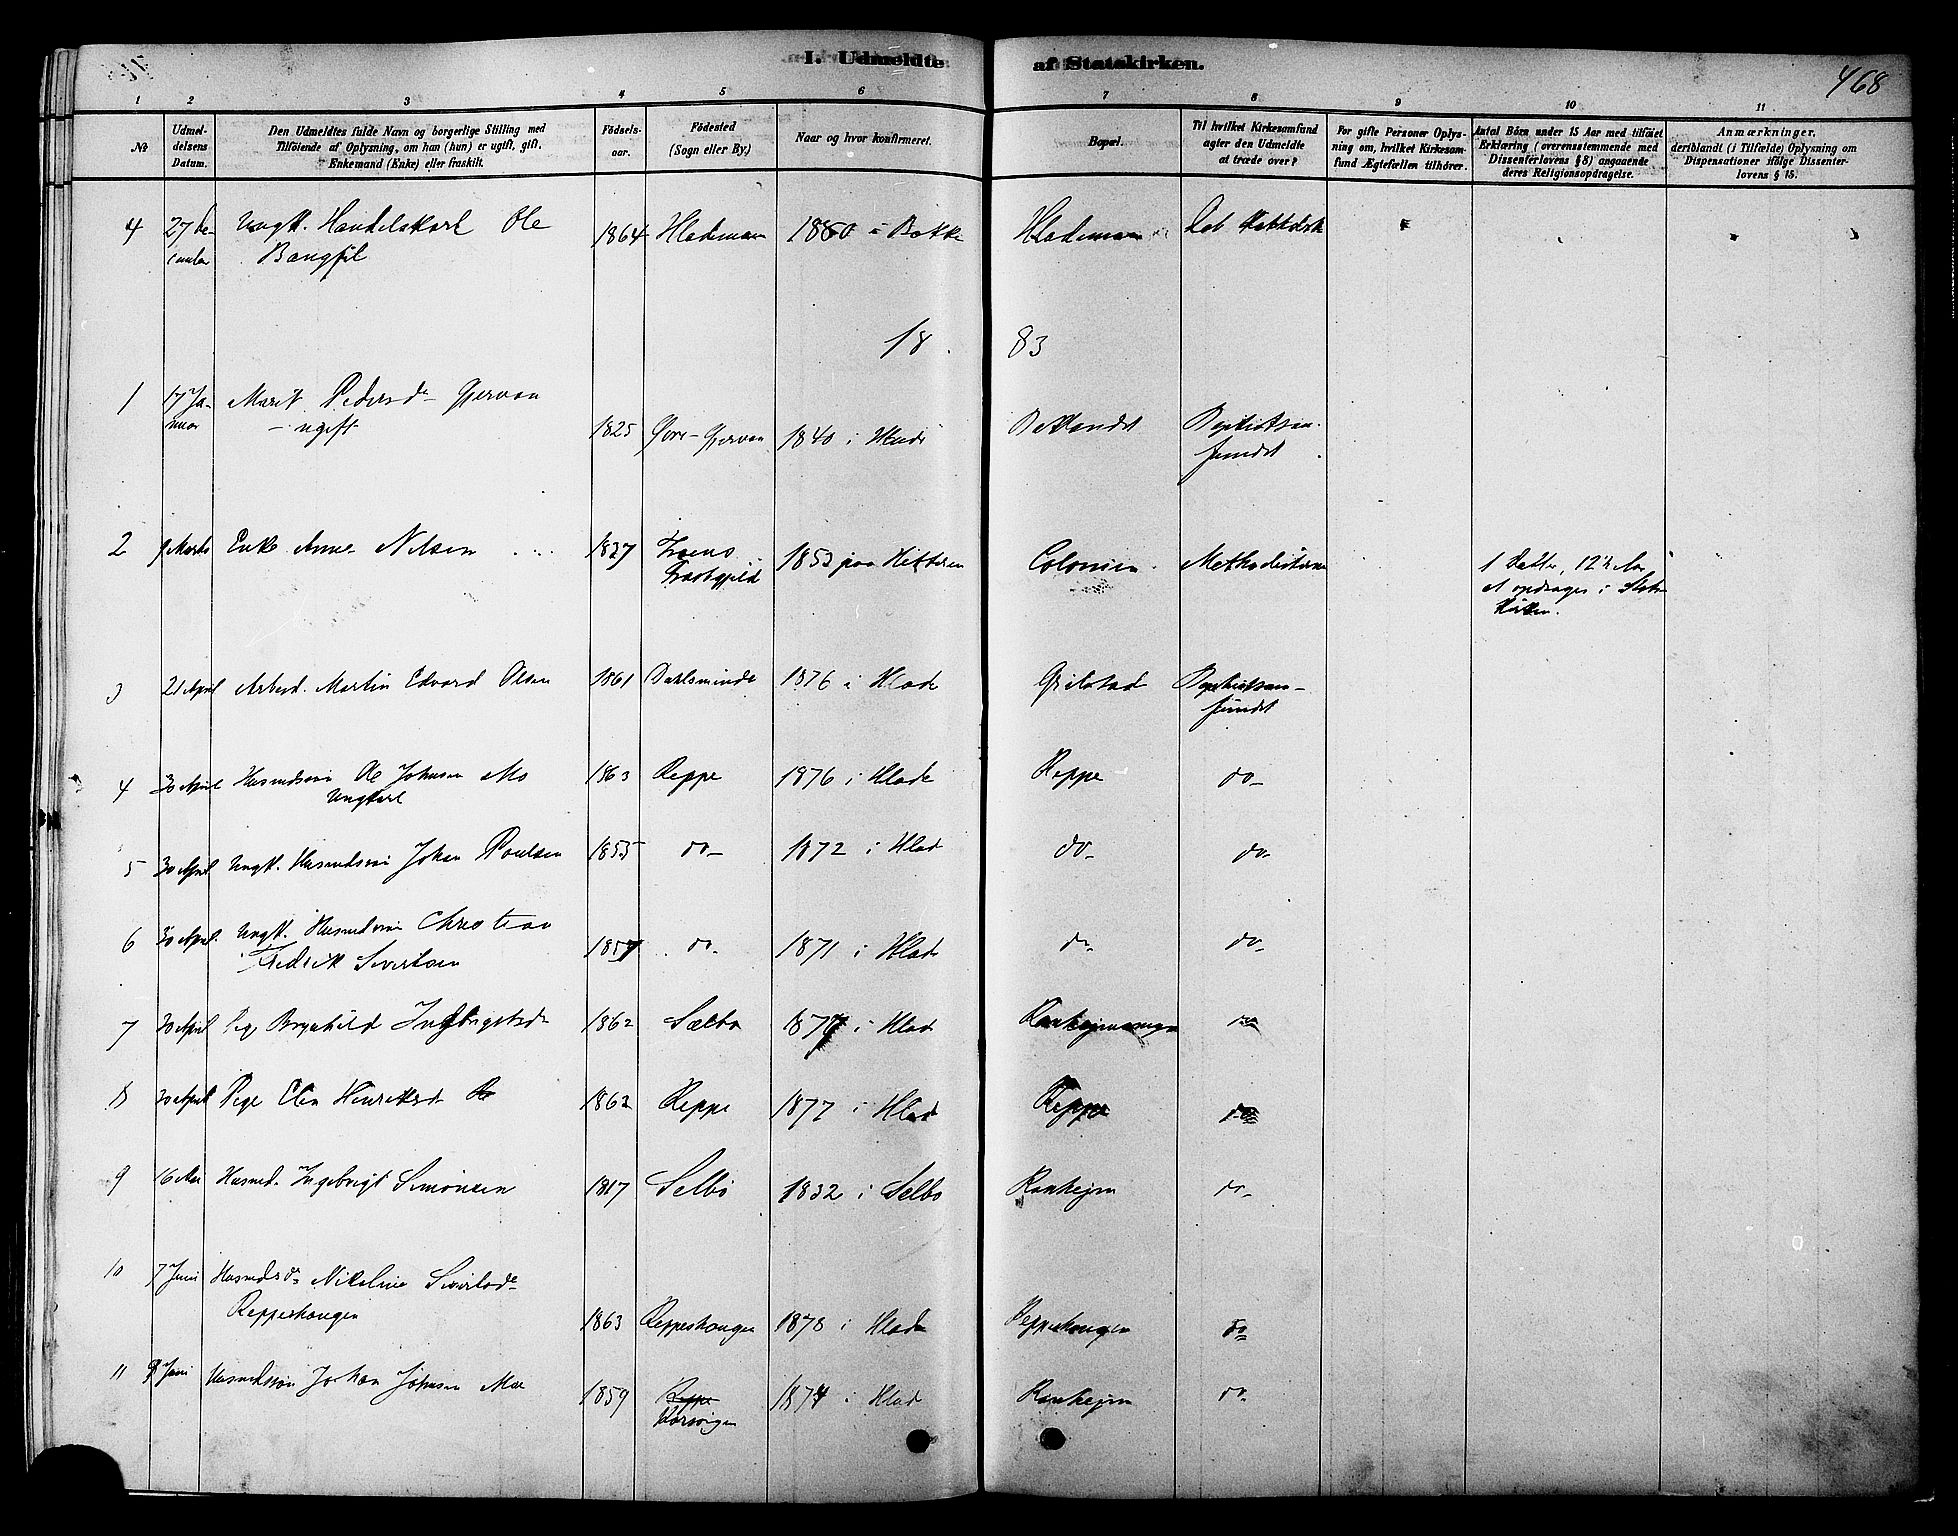 I. Udmeldte af Statskirken.
468
1 2 3 4 5 6 7 8 9 10 11
№
Udmeldelsens Datum.
Den Udmeldtes fulde Navn og borgerlige Stilling med
Tilføiende af Oplysning, om han (hun) er ugift, gift,
Enkemand (Enke) eller fraskilt.
Fødselsaar.
Fødested
(Sogn eller By.)
Naar og hvor konfirmeret.
Bopæl.
Til hvilket Kirkesamfund
agter den Udmeldte
at træde over?
For gifte Personer Oplys-
ning om, hvilket Kirkesam-
fund Ægtefællen tilhører.
Antal Børn under 15 Aar med tilføiet
Erklæring (overensstemmende med
Dissenterlovens § 8) angaaende
deres Religionsopdragelse.
Anmærkninger,
deriblandt (i Tilfælde) Oplysning om
Dispensationer ifølge Dissenter-
lovens § 15.
4 27 De- Ungk. Handelskarl Ole 1864 Hlademoen 1880 i Bakke Hlademoen
cember
1883
1 17 Ja- Marit Pedersd. Gjervan
nuar ugift 1825 Øvre-Gjervan 1840 i Hlade Baptistsam-
fundet
2 9 Marts Enke Anne Nilsen 1827 1852 paa Hitteren Colonien Methodisterne 1 Datter, 12½ Aar
Præstegjeld at opdrages i Stats
kirken.
3 21 April Arbeid. Martin Edvard Olsen 1861 Dahlsminde 1876 i Hlade Grilstad Baptistsam-
fundet
4 30 April Husmandssøn Ole Johnsen Mo 1863 Reppe 1876 i Hlade Reppe do-
Ungkarl
5 30 April Ungk. Husmandssøn Johan Poulsen 1855 do- 1872 i Hlade do- do-
6 30 April Ungk. Husmandssøn Christian
Fredrik Sivertsen 1857 do- 1871 i Hlade do- do-
7 30 April Pige Brynhild Ingebrigtsd. 1862 Sælbo 1877 i Hlade do
8 30 April Pige Elen Henriksd. 1862 Reppe 1877 i Hlade Reppe do
9 16 Mai Husmd. Ingebrigt Simonsen 1817 Selbo 1832 i Selbo Ranhejm do-
10 7 Juni Husmdsd. Nikoline Sivertsd.
Reppeshaugen 1863 Reppeshaugen 1878 i Hlade Reppeshaugen do
11 9 Juni Husmdssøn Johan Johnsen Moe 1859 Reppe 1874 i Hlade Ranhejm do-